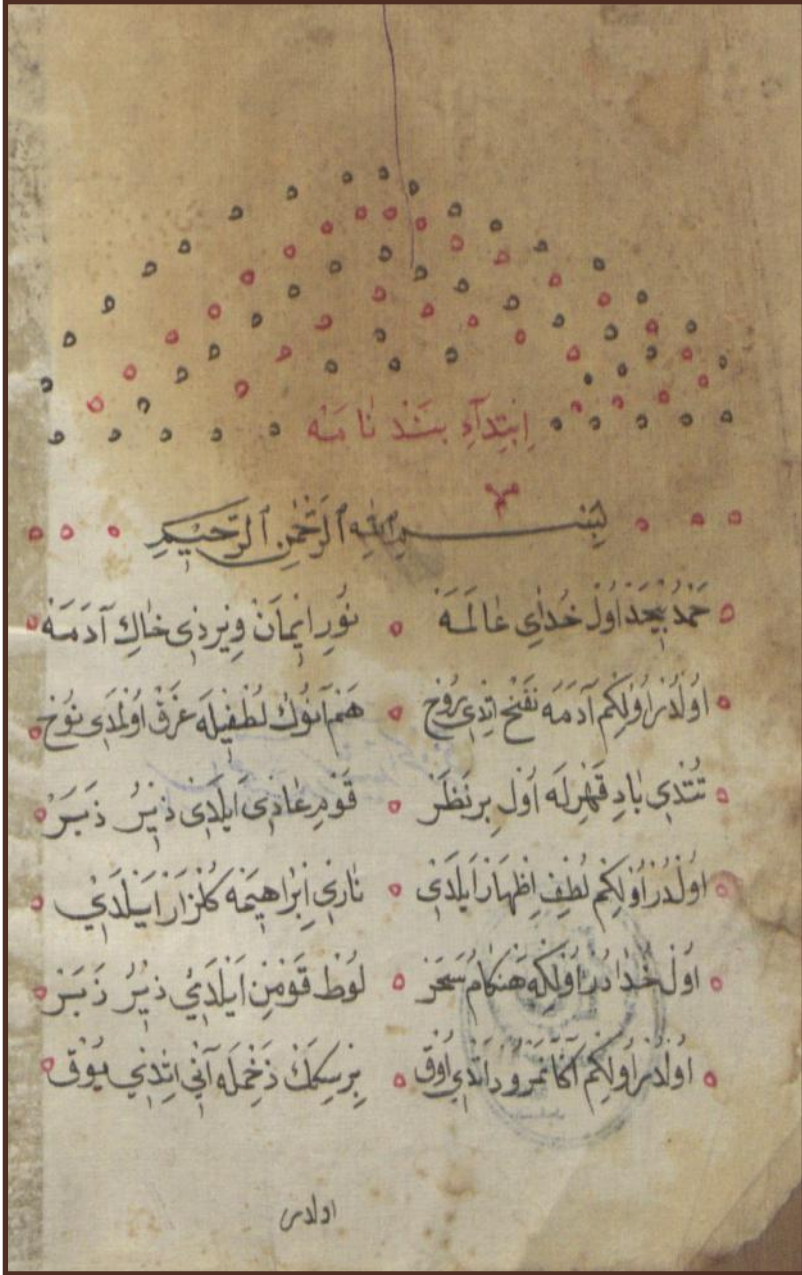 اِبْتِدَآءِ پَنْدْ نَامَهْ
بِسْمِ اللّٰهِ الرَّحْمٰنِ الرَّحِيمِ
حَمْدُ بِيحَدْ اُولْ خُدَاىِ عَالَمَهْ نُورِ ايمَانْ وِيرْدِى خَاكِ آدَمَهْ
اُولْدُرْ اُولْكِمْ آدَمَهْ نَفْخْ اِتْدِى رُوحْ هَمْ آنُوكْ لُطْفِيلَهْ غَرْقْ اُولْمَدِى نُوحْ
تُتْدِى بَادِ قَهْرِلَهْ اُولْ بِرْ نَظَرْ قَوْمِ عَادِى اَيْلَدِى زِيرُ زَبَرْ
اُولْدُرْ اُولْكِمْ لُطْفِ اِظْهَارْ اَيْلَدِى نَارِى اِبْرَاهِيمَهْ كُلْزَارْ اَيْلَدِى
اُولْ خُدَادُرْ اُولْكِهْ هَنْكَامُ سَحَرْ لُوطْ قَوْمِنْ اَيْلَدِى زِيرُ زَبَرْ
اُولْدُرْ اُولْكِمْ آكَا نَمْرُودْ اَتْدِى اُوقْ بِرْ سِكَكْ زَخْمِلَهْ آنِى اِتْدِى يُوقْ
اولدر